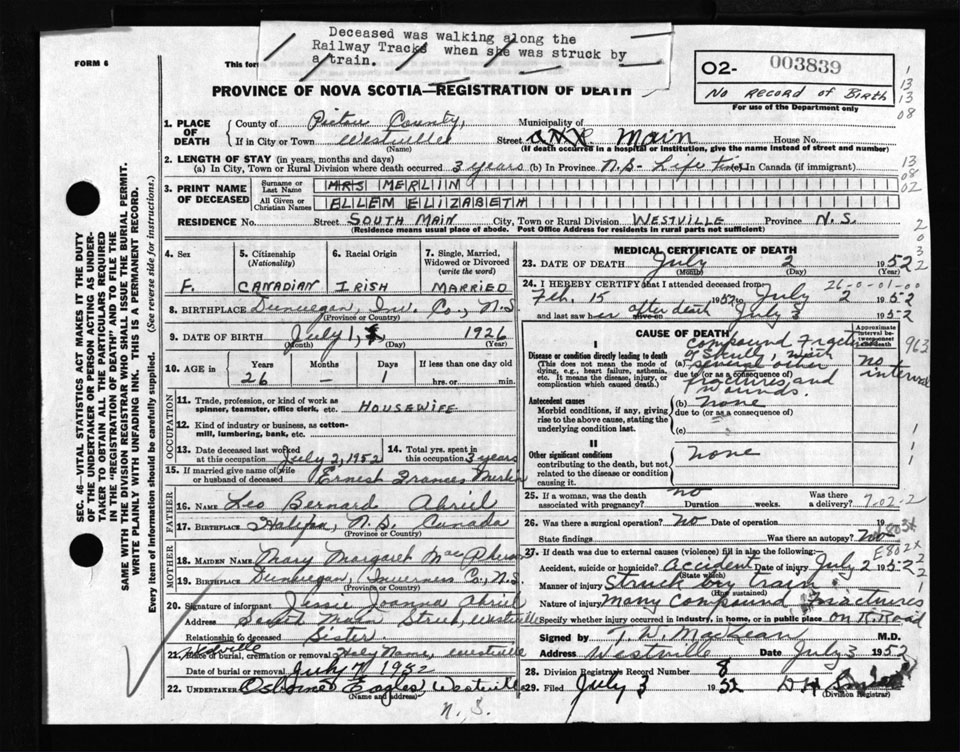 Deceased was walking along the
Railway Tracks when she was struck by
a train.
FORM 6
This for
02- 003839
No Record of Birth
For use of the Department only
PROVINCE OF NOVA SCOTIA—REGISTRATION OF DEATH
1. PLACE OF DEATH
County of Pictou County, Municipality of
If in City or Town Westville Street C.N.R. Main House No.
(Name) (If death occurred in a hospital or institution, give the name instead of street and number)
2. LENGTH OF STAY (in years, months and days)
(a) In City, Town or Rural Division where death occurred 3 years (b) In Province N.S. Life time (c) In Canada (if immigrant)
3. PRINT NAME OF DECEASED
Surname or Last Name MRS MERLIN
All Given or Christian Names ELLEN ELIZABETH
RESIDENCE No. Street SOUTH MAIN City, Town or Rural Division WESTVILLE Province N.S.
(Residence means usual place of abode. Post Office Address for residents in rural parts not sufficient)
4. Sex F.
5. Citizenship (Nationality) CANADIAN
6. Racial Origin IRISH
7. Single, Married, Widowed or Divorced (write the word) MARRIED
8. BIRTHPLACE Dunvegan, Inv. Co., N.S
(Province or Country)
9. DATE OF BIRTH July 1, 1926
(Month) (Day) (Year)
10. AGE in Years Months Days If less than one day old
26 - 1 hrs. or min.
OCCUPATION
11. Trade, profession, or kind of work as spinner, teamster, office clerk, etc. HOUSEWIFE
12. Kind of industry or business, as cotton-mill, lumbering, bank, etc.
13. Date deceased last worked at this occupation July 2, 1952
14. Total yrs. spent in this occupation 3 years
15. If married give name of wife or husband of deceased Ernest Frances Merlin
FATHER
16. Name Leo Bernard Abriel
17. Birthplace Halifax, N.S. Canada
(Province or Country)
MOTHER
18. Maiden Name Mary Margaret MacPherson
19. Birthplace Dunvegan, Inverness Co., N.S.
(Province or Country)
20. Signature of informant Jessie Joanna Abriel
Address South Main Street, Westville
Relationship to deceased Sister.
21. Place of burial, cremation or removal Holy Name, Westville
Westville
Date of burial or removal July 4 1952
22. Undertaker Osborne Eagles, Westville
(Name and address)
N. S.
MEDICAL CERTIFICATE OF DEATH
23. DATE OF DEATH July 2 1952
(Month) (Day) (Year)
26-0-01-00
24. I HEREBY CERTIFY that I attended deceased from
Feb. 15 1952 to July 2 1952
and last saw her alive on after death July 3 1952
CAUSE OF DEATH
Approximate interval between onset and death
I
Disease or condition directly leading to death
(This does not mean the mode of dying, e.g., heart failure, asthenia, etc. It means the disease, injury, or complication which caused death.)
(a) Compound Fracture of Skull, with several other fractures and wounds.
due to (or as a consequence of)
no interval
Antecedent causes
Morbid conditions, if any, giving rise to the above cause, stating the underlying condition last.
(b) None
due to (or as a consequence of)
(c)
II
Other significant conditions
contributing to the death, but not related to the disease or condition causing it.
None
25. If a woman, was the death associated with pregnancy? no Duration weeks. Was there a delivery?
7-02-2
26. Was there a surgical operation? No Date of operation 19
State findings Was there an autopsy? No
27. If death was due to external causes (violence) fill in also the following:
Accident, suicide or homicide? Accident Date of injury July 2 1952
(State which)
Manner of injury Struck by train
(How sustained)
Nature of injury Many Compound Fractures
Specify whether injury occurred in industry, in home, or in public place on R. Road
Signed by T. W. MacKean M.D.
Address Westville Date July 3 1952
28. Division Registrar's Record Number 8
29. Filed July 3 1952
(Division Registrar)
963
E802X
SEC. 46—VITAL STATISTICS ACT MAKES IT THE DUTY
OF THE UNDERTAKER OR PERSON ACTING AS UNDER-
TAKER TO OBTAIN ALL THE PARTICULARS REQUIRED
IN THE "REGISTRATION OF DEATH" AND TO FILE THE
SAME WITH THE DIVISION REGISTRAR WHO SHALL ISSUE THE BURIAL PERMIT.
WRITE PLAINLY WITH UNFADING INK. THIS IS A PERMANENT RECORD.
Every item of information should be carefully supplied. (See reverse side for instructions.)